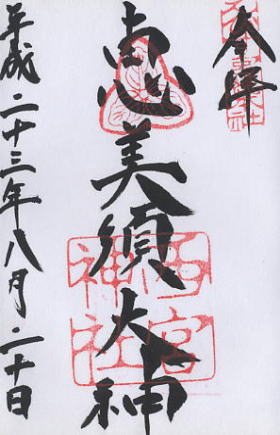 奉拝
恵美須大神
西宮神社
平成二十三年八月二十日